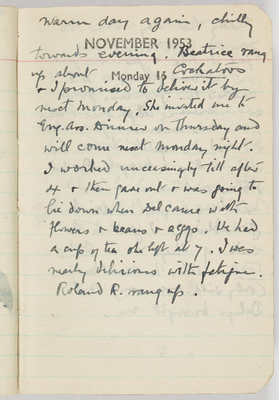 warm day again, chilly
towards evening. Beatrice rang
NOVEMBER 1953
up about Cockatoos
Monday 16
& I promised to deliver it by
next Monday. She invited me to
Eng. Ass. Dinner on Thursday and
will come next Monday night.
I worked unceasingly till after
4 & then gave out & was going to
lie down when Del came with
flowers & beans & eggs. We had
a cup of tea she left at 7. I was
nearly delirious with fatigue.
Roland R. rang up.